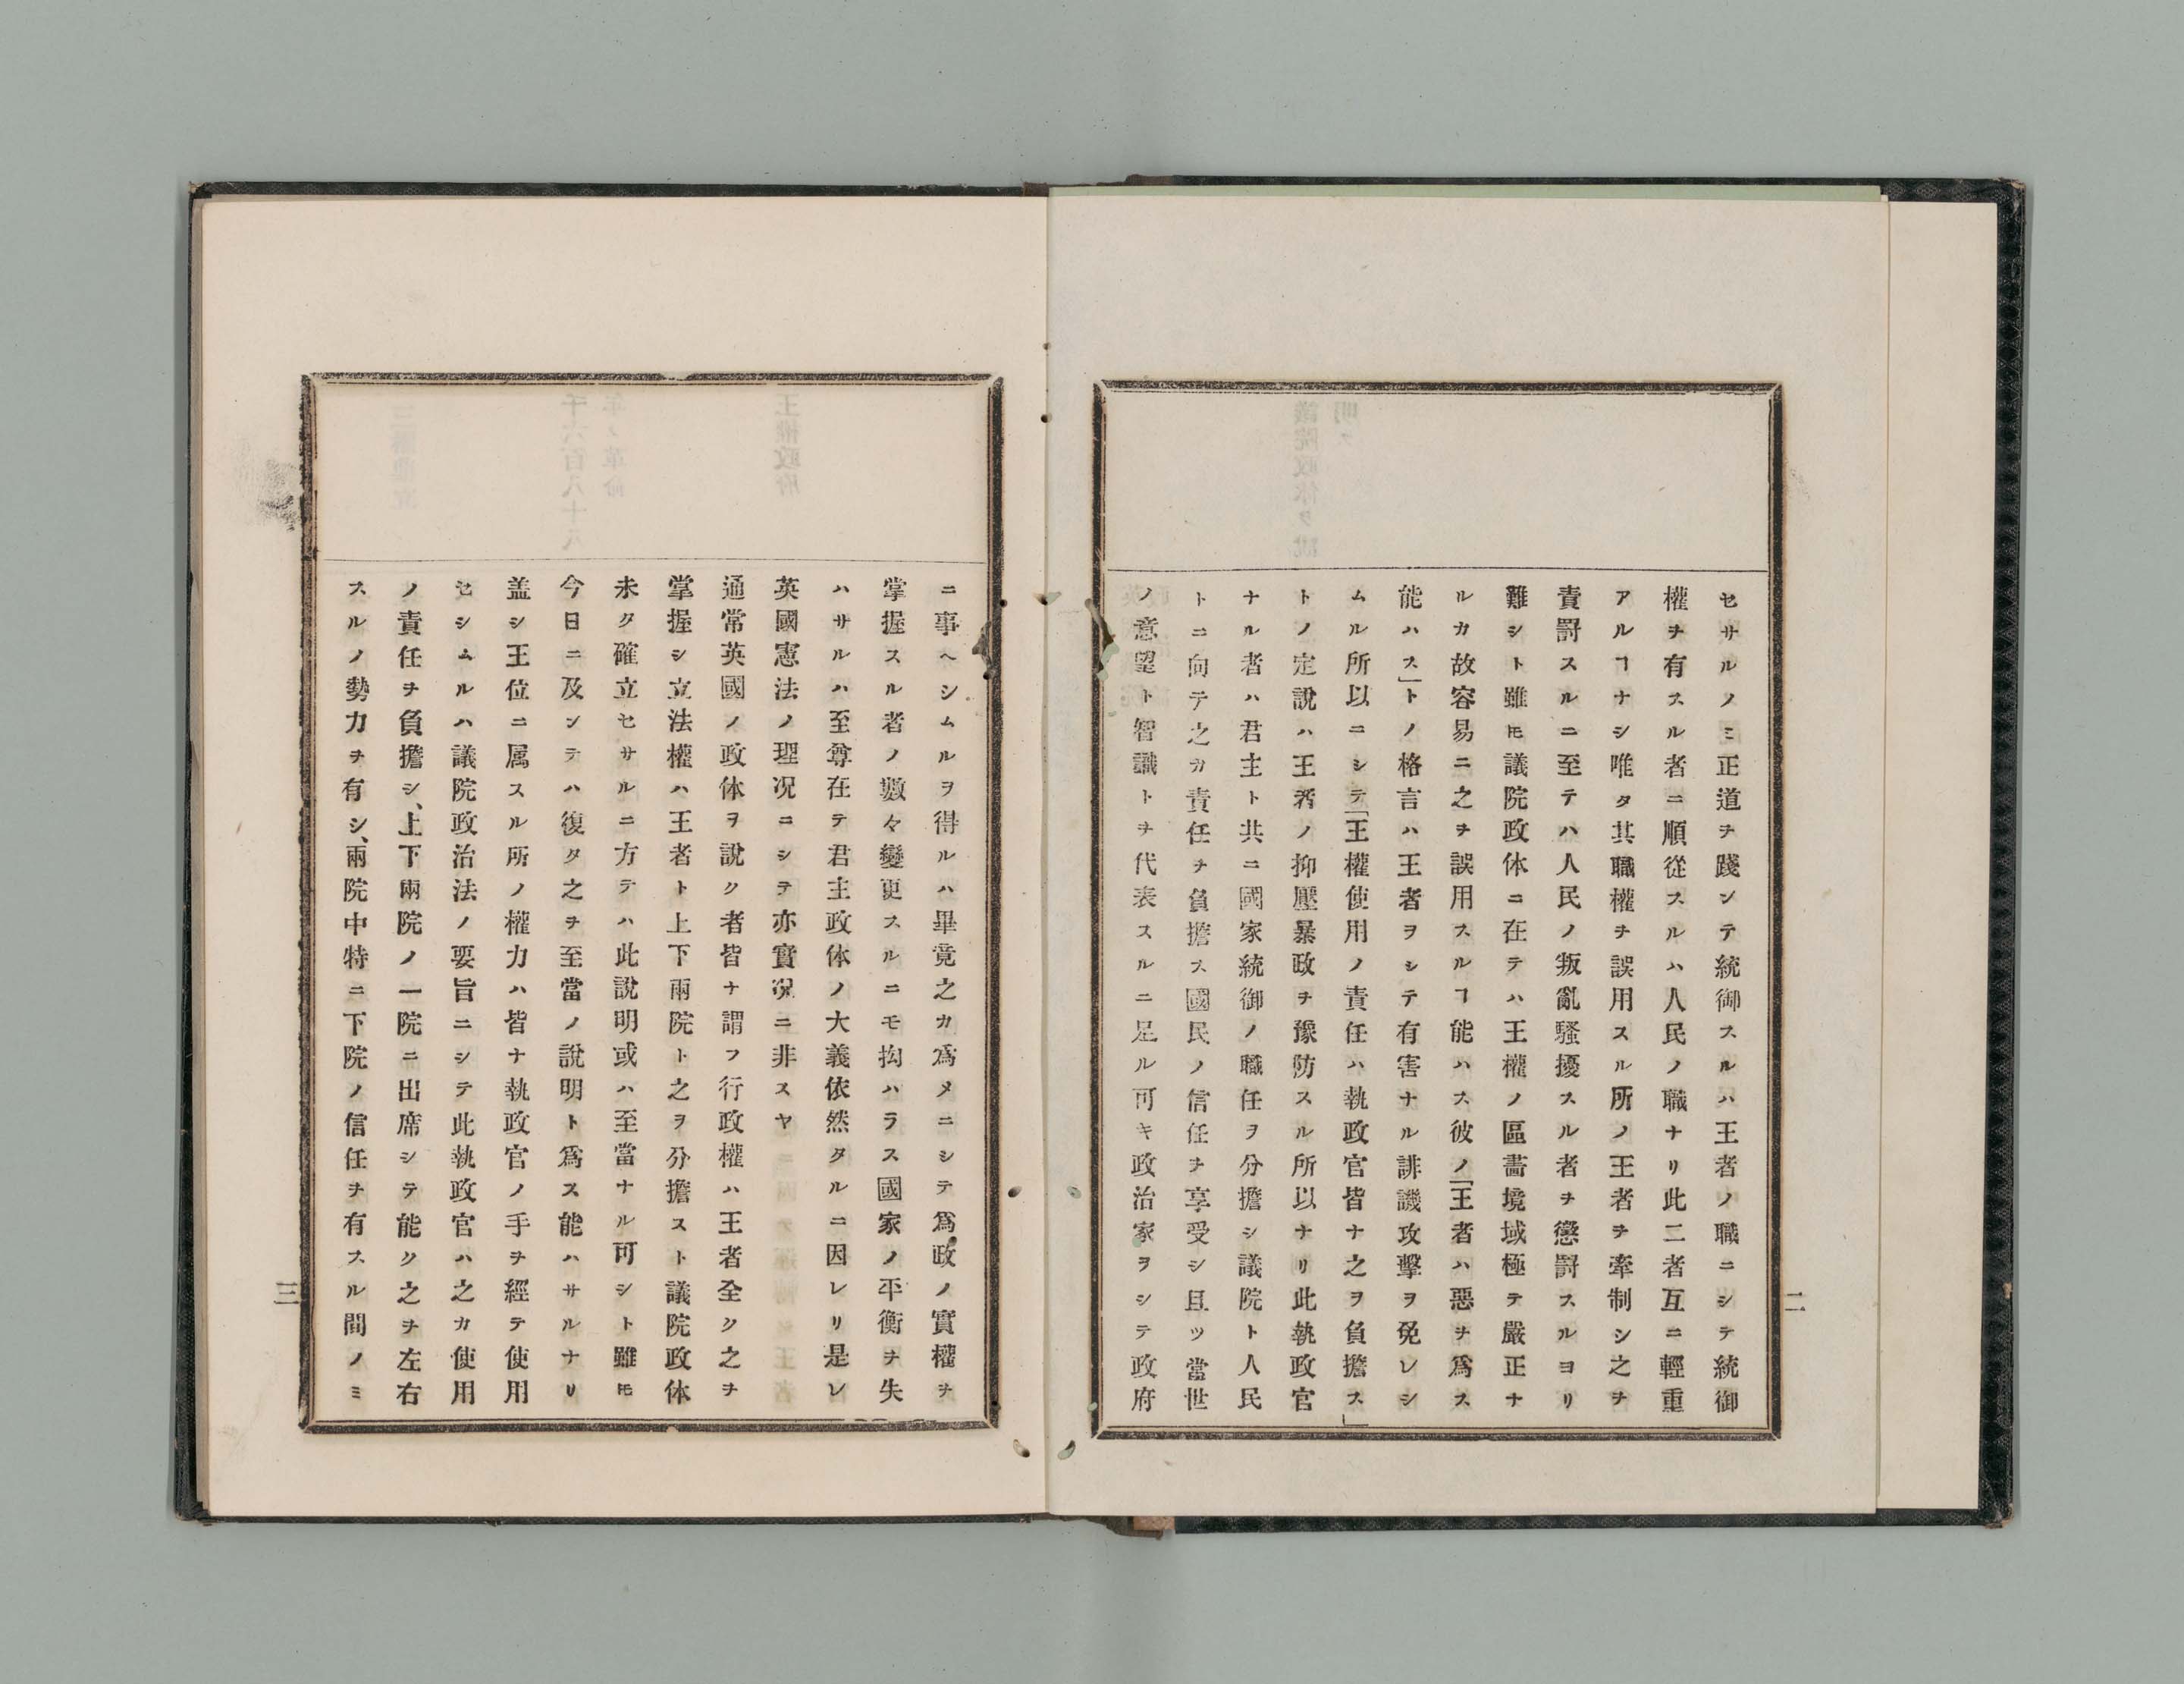 セサルノミ正道ヲ踐ンテ統御スルハ王者ノ職ニシテ統御
權ヲ有スル者ニ順從スルハ人民ノ職ナリ此二者互ニ輕重
アルヿナシ唯タ其職權ヲ誤用スル所ノ王者ヲ牽制シ之ヲ
責罰スルニ至テハ人民ノ叛亂騷擾スル者ヲ懲罰スルヨリ
難シト雖𪜈議院政体ニ在テハ王權ノ區畵境域極テ嚴正ナ
ルカ故容易ニ之ヲ誤用スルヿ能ハス彼ノ「王者ハ惡ヲ爲ス
能ハス」トノ格言ハ王者ヲシテ有害ナル誹譏攻擊ヲ免レシ
ムル所以ニシテ「王權使用ノ責任ハ執政官皆ナ之ヲ負擔ス」
トノ定說ハ王者ノ抑壓暴政ヲ豫防スル所以ナリ此執政官
ナル者ハ君主ト共ニ國家統御ノ職任ヲ分擔シ議院ト人民
トニ向テ之カ責任ヲ負擔ス國民ノ信任ヲ享受シ且ツ當世
ノ意望ト智識トヲ代表スルニ足ル可キ政治家ヲシテ政府
二
ニ事ヘシムルヲ得ルハ畢竟之カ爲メニシテ爲政ノ實權ヲ
掌握スル者ノ數々變更スルニモ拘ハラス國家ノ平衡ヲ失
ハサルハ至尊在テ君主政体ノ大義依然タルニ因レリ是レ
英國憲法ノ理况ニシテ亦實况ニ非スヤ
通常英國ノ政体ヲ說ク者皆ナ謂フ行政權ハ王者全ク之ヲ
掌握シ立法權ハ王者ト上下兩院ト之ヲ分擔スト議院政体
未タ確立セサルニ方テハ此說明或ハ至當ナル可シト雖𪜈
今日ニ及ンテハ復タ之ヲ至當ノ說明ト爲ス能ハサルナリ
盖シ王位ニ属スル所ノ權力ハ皆ナ執政官ノ手ヲ經テ使用
セシムルハ議院政治法ノ要旨ニシテ此執政官ハ之カ使用
ノ責任ヲ負擔シ、上下兩院ノ一院ニ出席シテ能ク之ヲ左右
スルノ勢力ヲ有シ、兩院中特ニ下院ノ信任ヲ有スル間ノミ
三